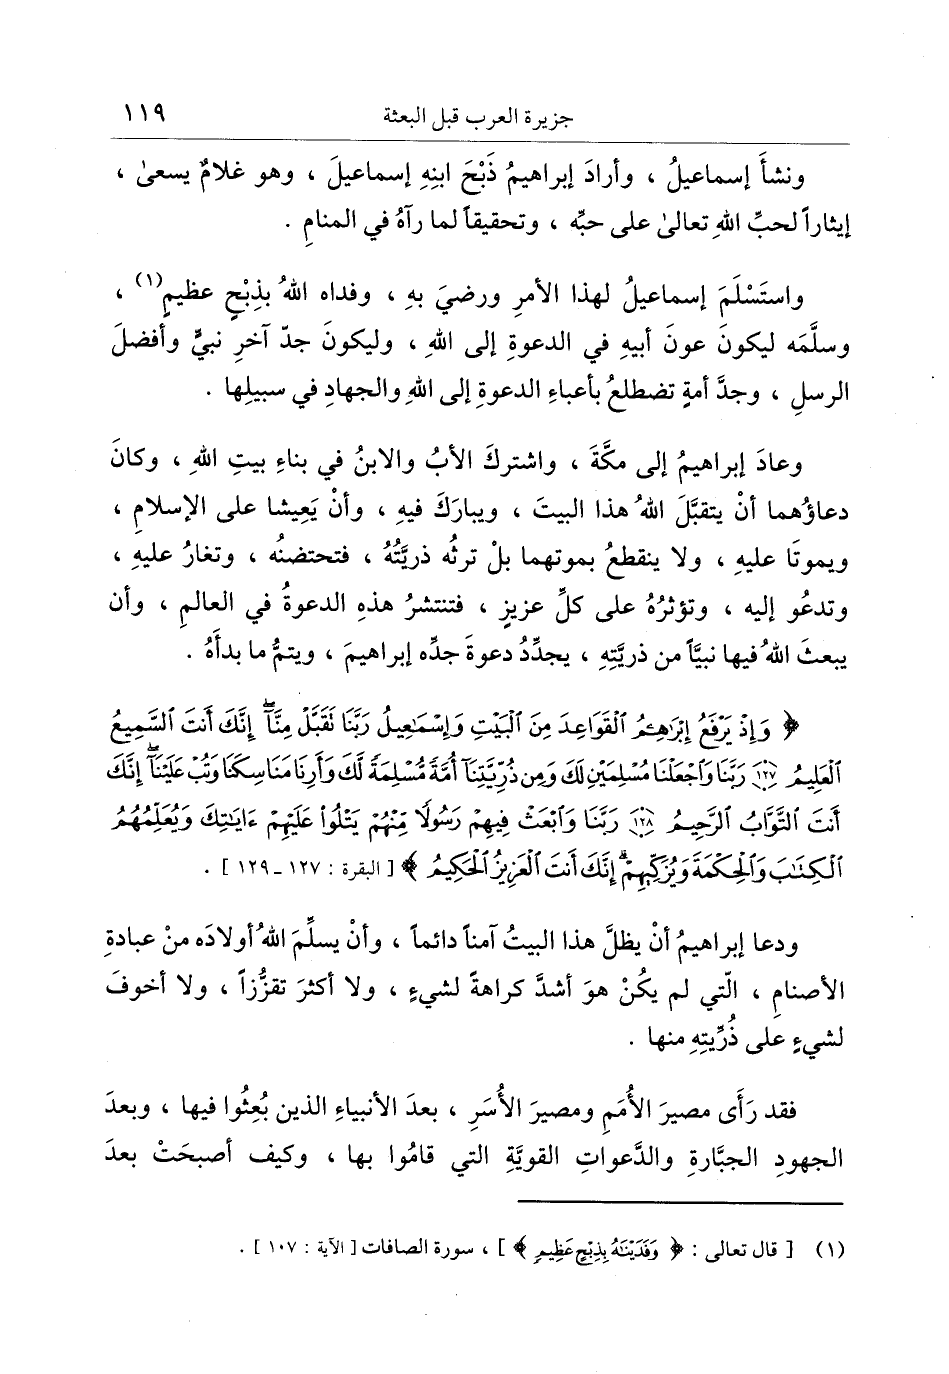 جزيرة العرب قبل البعثة ١١٩
ونشأَ إسماعيلُ ، وأرادَ إبراهيمُ ذَبْحَ ابنِهِ إسماعيلَ ، وهو غلامٌ يسعىٰ ،
إيثاراً لحبِّ اللهِ تعالىٰ على حبِّه ، وتحقيقاً لما رآهُ في المنامِ .
واستَسْلَمَ إسماعيلُ لهذا الأمرِ ورضيَ بهِ ، وفداه اللهُ بذِبْحٍ عظيمٍ(١) ،
وسلَّمَه ليكونَ عونَ أبيهِ في الدعوةِ إلى اللهِ ، وليكونَ جدّ آخرِ نبيٍّ وأفضلَ
الرسلِ ، وجدَّ أمةٍ تضطلعُ بأعباءِ الدعوةِ إلى اللهِ والجهادِ في سبيلِها .
وعادَ إبراهيمُ إلى مكَّةَ ، واشتركَ الأبُ والابنُ في بناءِ بيتِ اللهِ ، وكانَ
دعاؤُهما أنْ يتقبَّلَ اللهُ هذا البيتَ ، ويباركَ فيهِ ، وأنْ يَعِيشا على الإسلامِ ،
ويموتَا عليهِ ، ولا ينقطعُ بموتهما بلْ ترثُه ذريَّتُهُ ، فتحتضنُه ، وتغارُ عليهِ ،
وتدعُو إليه ، وتؤثرُهُ على كلِّ عزيزٍ ، فتنتشرُ هذهِ الدعوةُ في العالمِ ، وأن
يبعثَ اللهُ فيها نبيَّاً من ذريَّتِهِ ، يجدِّدُ دعوةَ جدِّه إبراهيمَ ، ويتمُّ ما بدأَهُ .
﴿ وَإِذْ يَرْفَعُ إِبْرَٰهِـۧمُ ٱلْقَوَاعِدَ مِنَ ٱلْبَيْتِ وَإِسْمَٰعِيلُ رَبَّنَا نَقَبَّلْ مِنَّآ ۖ إِنَّكَ أَنتَ ٱلسَّمِيعُ
ٱلْعَلِيمُ ﴿١٢٧﴾ رَبَّنَا وَٱجْعَلْنَا مُسْلِمَيْنِ لَكَ وَمِن ذُرِّيَّتِنَآ أُمَّةً مُّسْلِمَةً لَّكَ وَأَرِنَا مَنَاسِكَنَا وَتُبْ عَلَيْنَآ ۖ إِنَّكَ
أَنتَ ٱلتَّوَّابُ ٱلرَّحِيمُ ﴿١٢٨﴾ رَبَّنَا وَٱبْعَثْ فِيهِمْ رَسُولًا مِّنْهُمْ يَتْلُوا۟ عَلَيْهِمْ ءَايَٰتِكَ وَيُعَلِّمُهُمُ
ٱلْكِتَٰبَ وَٱلْحِكْمَةَ وَيُزَكِّيهِمْ ۚ إِنَّكَ أَنتَ ٱلْعَزِيزُ ٱلْحَكِيمُ ﴾ [ البقرة : ١٢٧ ـ ١٢٩ ] .
ودعا إبراهيمُ أنْ يظلَّ هذا البيتُ آمناً دائماً ، وأنْ يسلِّمَ اللهُ أولادَه منْ عبادةِ
الأصنامِ ، الّتي لم يكُنْ هوَ أشدَّ كراهةً لشيءٍ ، ولا أكثرَ تقزُّزاً ، ولا أخوفَ
لشيءٍ على ذُرِّيتِهِ منها .
فقد رَأَى مصيرَ الأُمَمِ ومصيرَ الأُسَرِ ، بعدَ الأنبياءِ الذين بُعِثُوا فيها ، وبعدَ
الجهودِ الجبَّارةِ والدَّعواتِ القويَّةِ التي قامُوا بها ، وكيف أصبحَتْ بعدَ
(١) [ قال تعالى : ﴿ وَفَدَيْنَٰهُ بِذِبْحٍ عَظِيمٍ ﴾ ] ، سورة الصافات [ الآية : ١٠٧ ] .